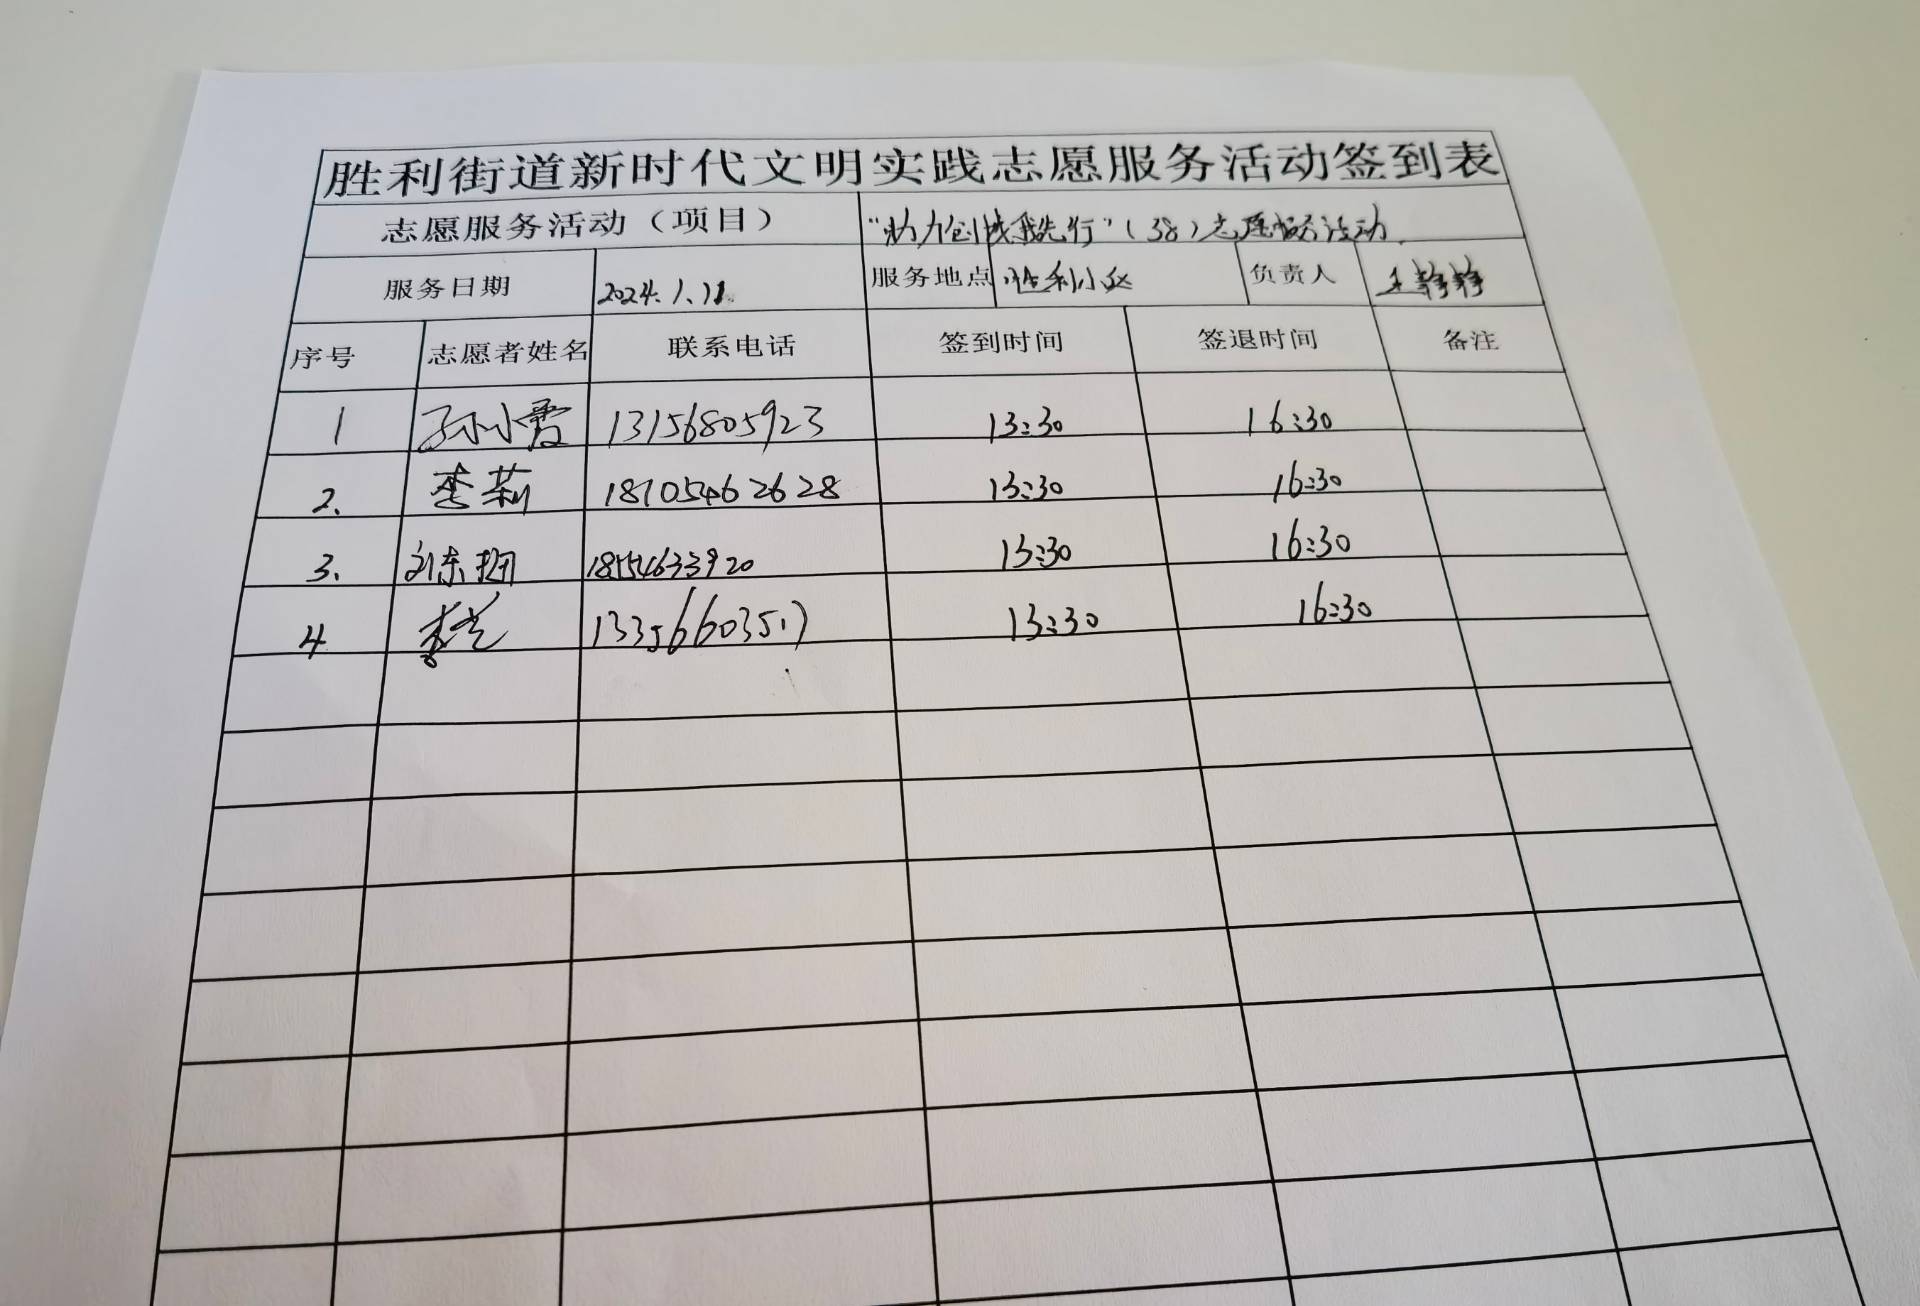 胜利街道新时代文明实践志愿服务活动签到表
志愿服务活动（项目） “助力创城我先行”（38）志愿服务活动
服务日期 2024.1.11. 服务地点 胜利小区 负责人 王静静
序号 志愿者姓名 联系电话 签到时间 签退时间 备注
1 孙小霞 13156805923 13:30 16:30
2. 李莉 18105462628 13:30 16:30
3. 刘东翔 18554633920 13:30 16:30
4 李 13356603517 13:30 16:30